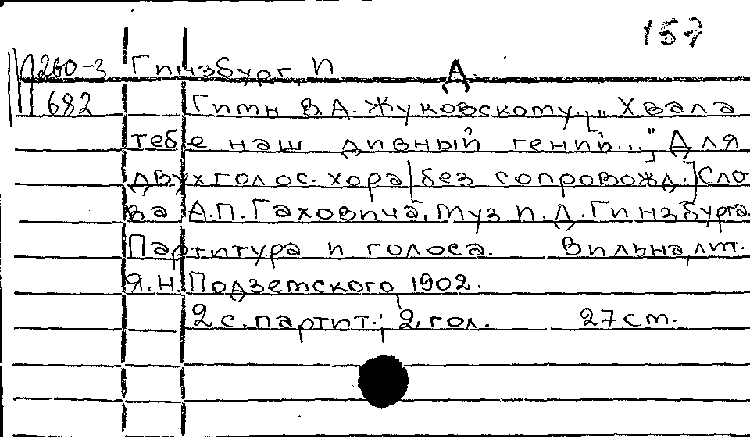 157
П260-3 Гинзбург, П
Д.
682 Гимн В.А. Жуковскому „Хвала
тебе наш дивный гений..." Для
двухголос. хора [без сопровожд.] Сло
ва А.П. Гаховича, муз П.Д. Гинзбурга
Партитура и голоса. Вильна, лит.
Я.Н. Подземского 1902.
2 с. партит.; 2 гол. 27 см.